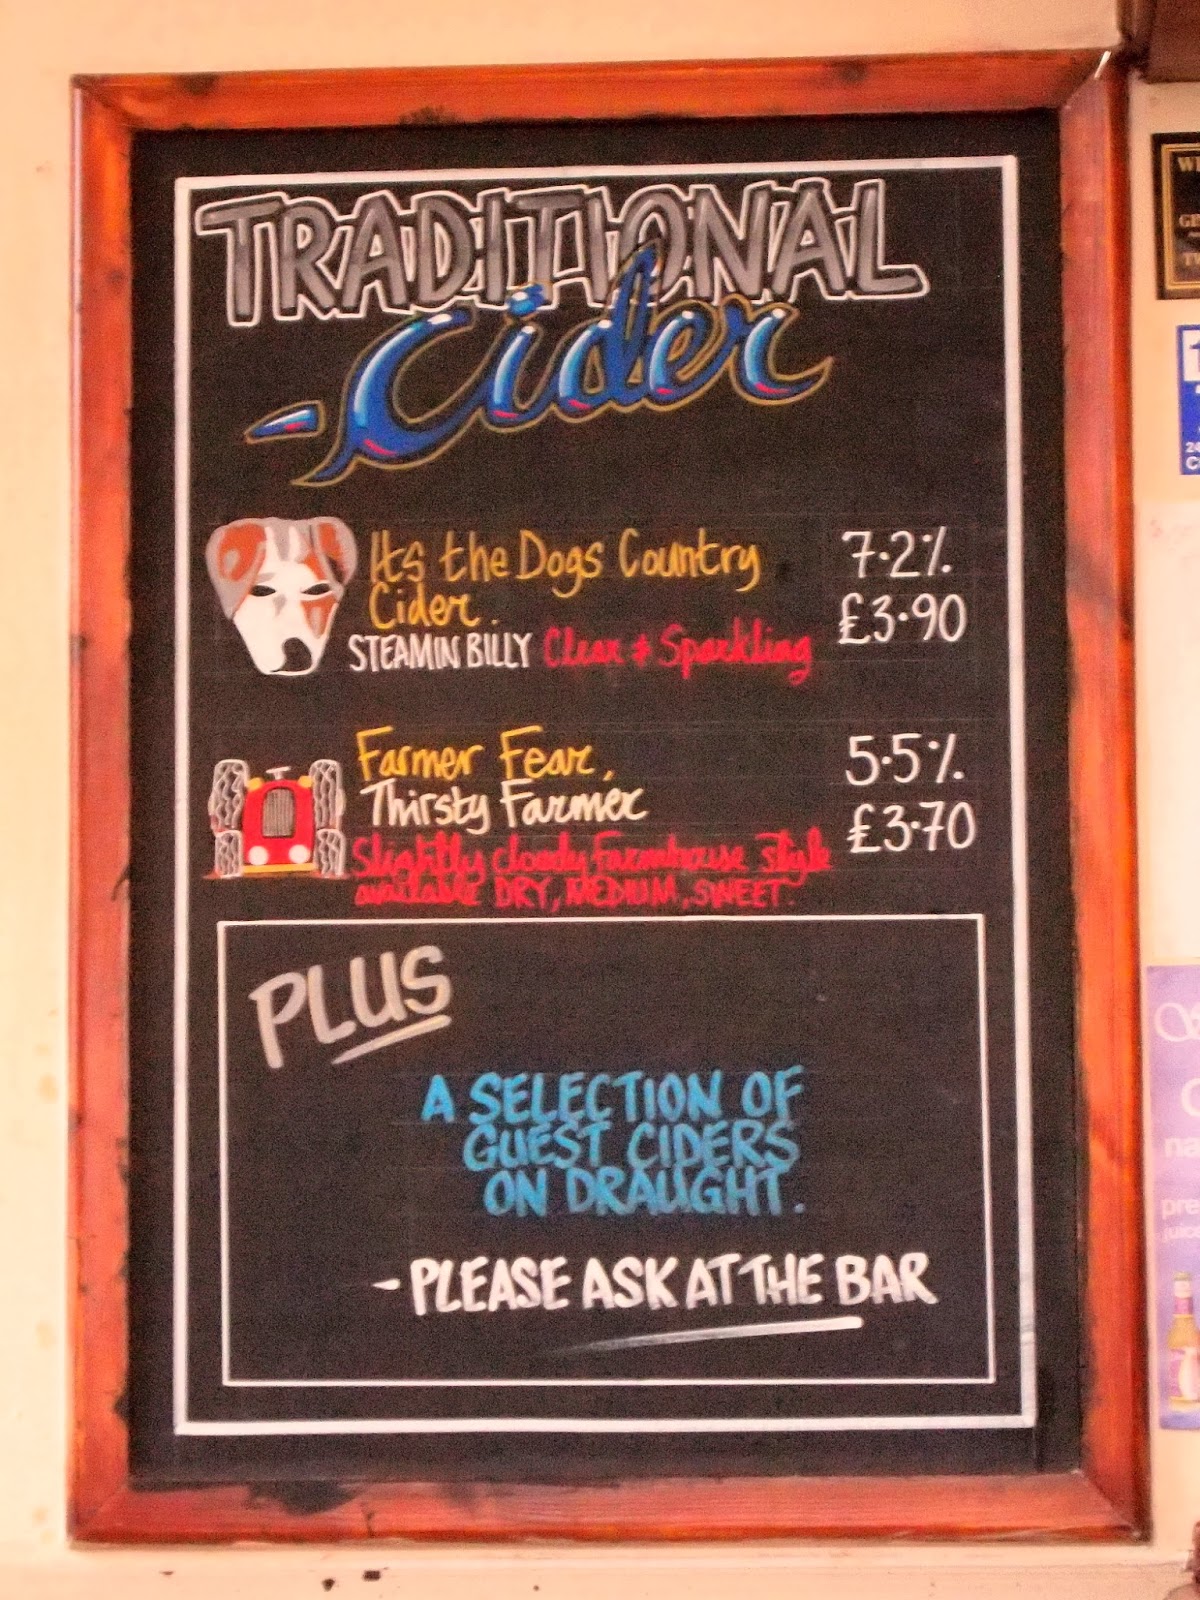 TRADITIONAL
-Cider
Its the Dogs Country
Cider.
STEAMIN BILLY Clear & Sparkling
7.2%
£3.90
Farmer Fear,
Thirsty Farmer
Slightly cloudy farmhouse style
available DRY, MEDIUM, SWEET.
5.5%
£3.70
PLUS
A SELECTION OF
GUEST CIDERS
ON DRAUGHT.
-PLEASE ASK AT THE BAR